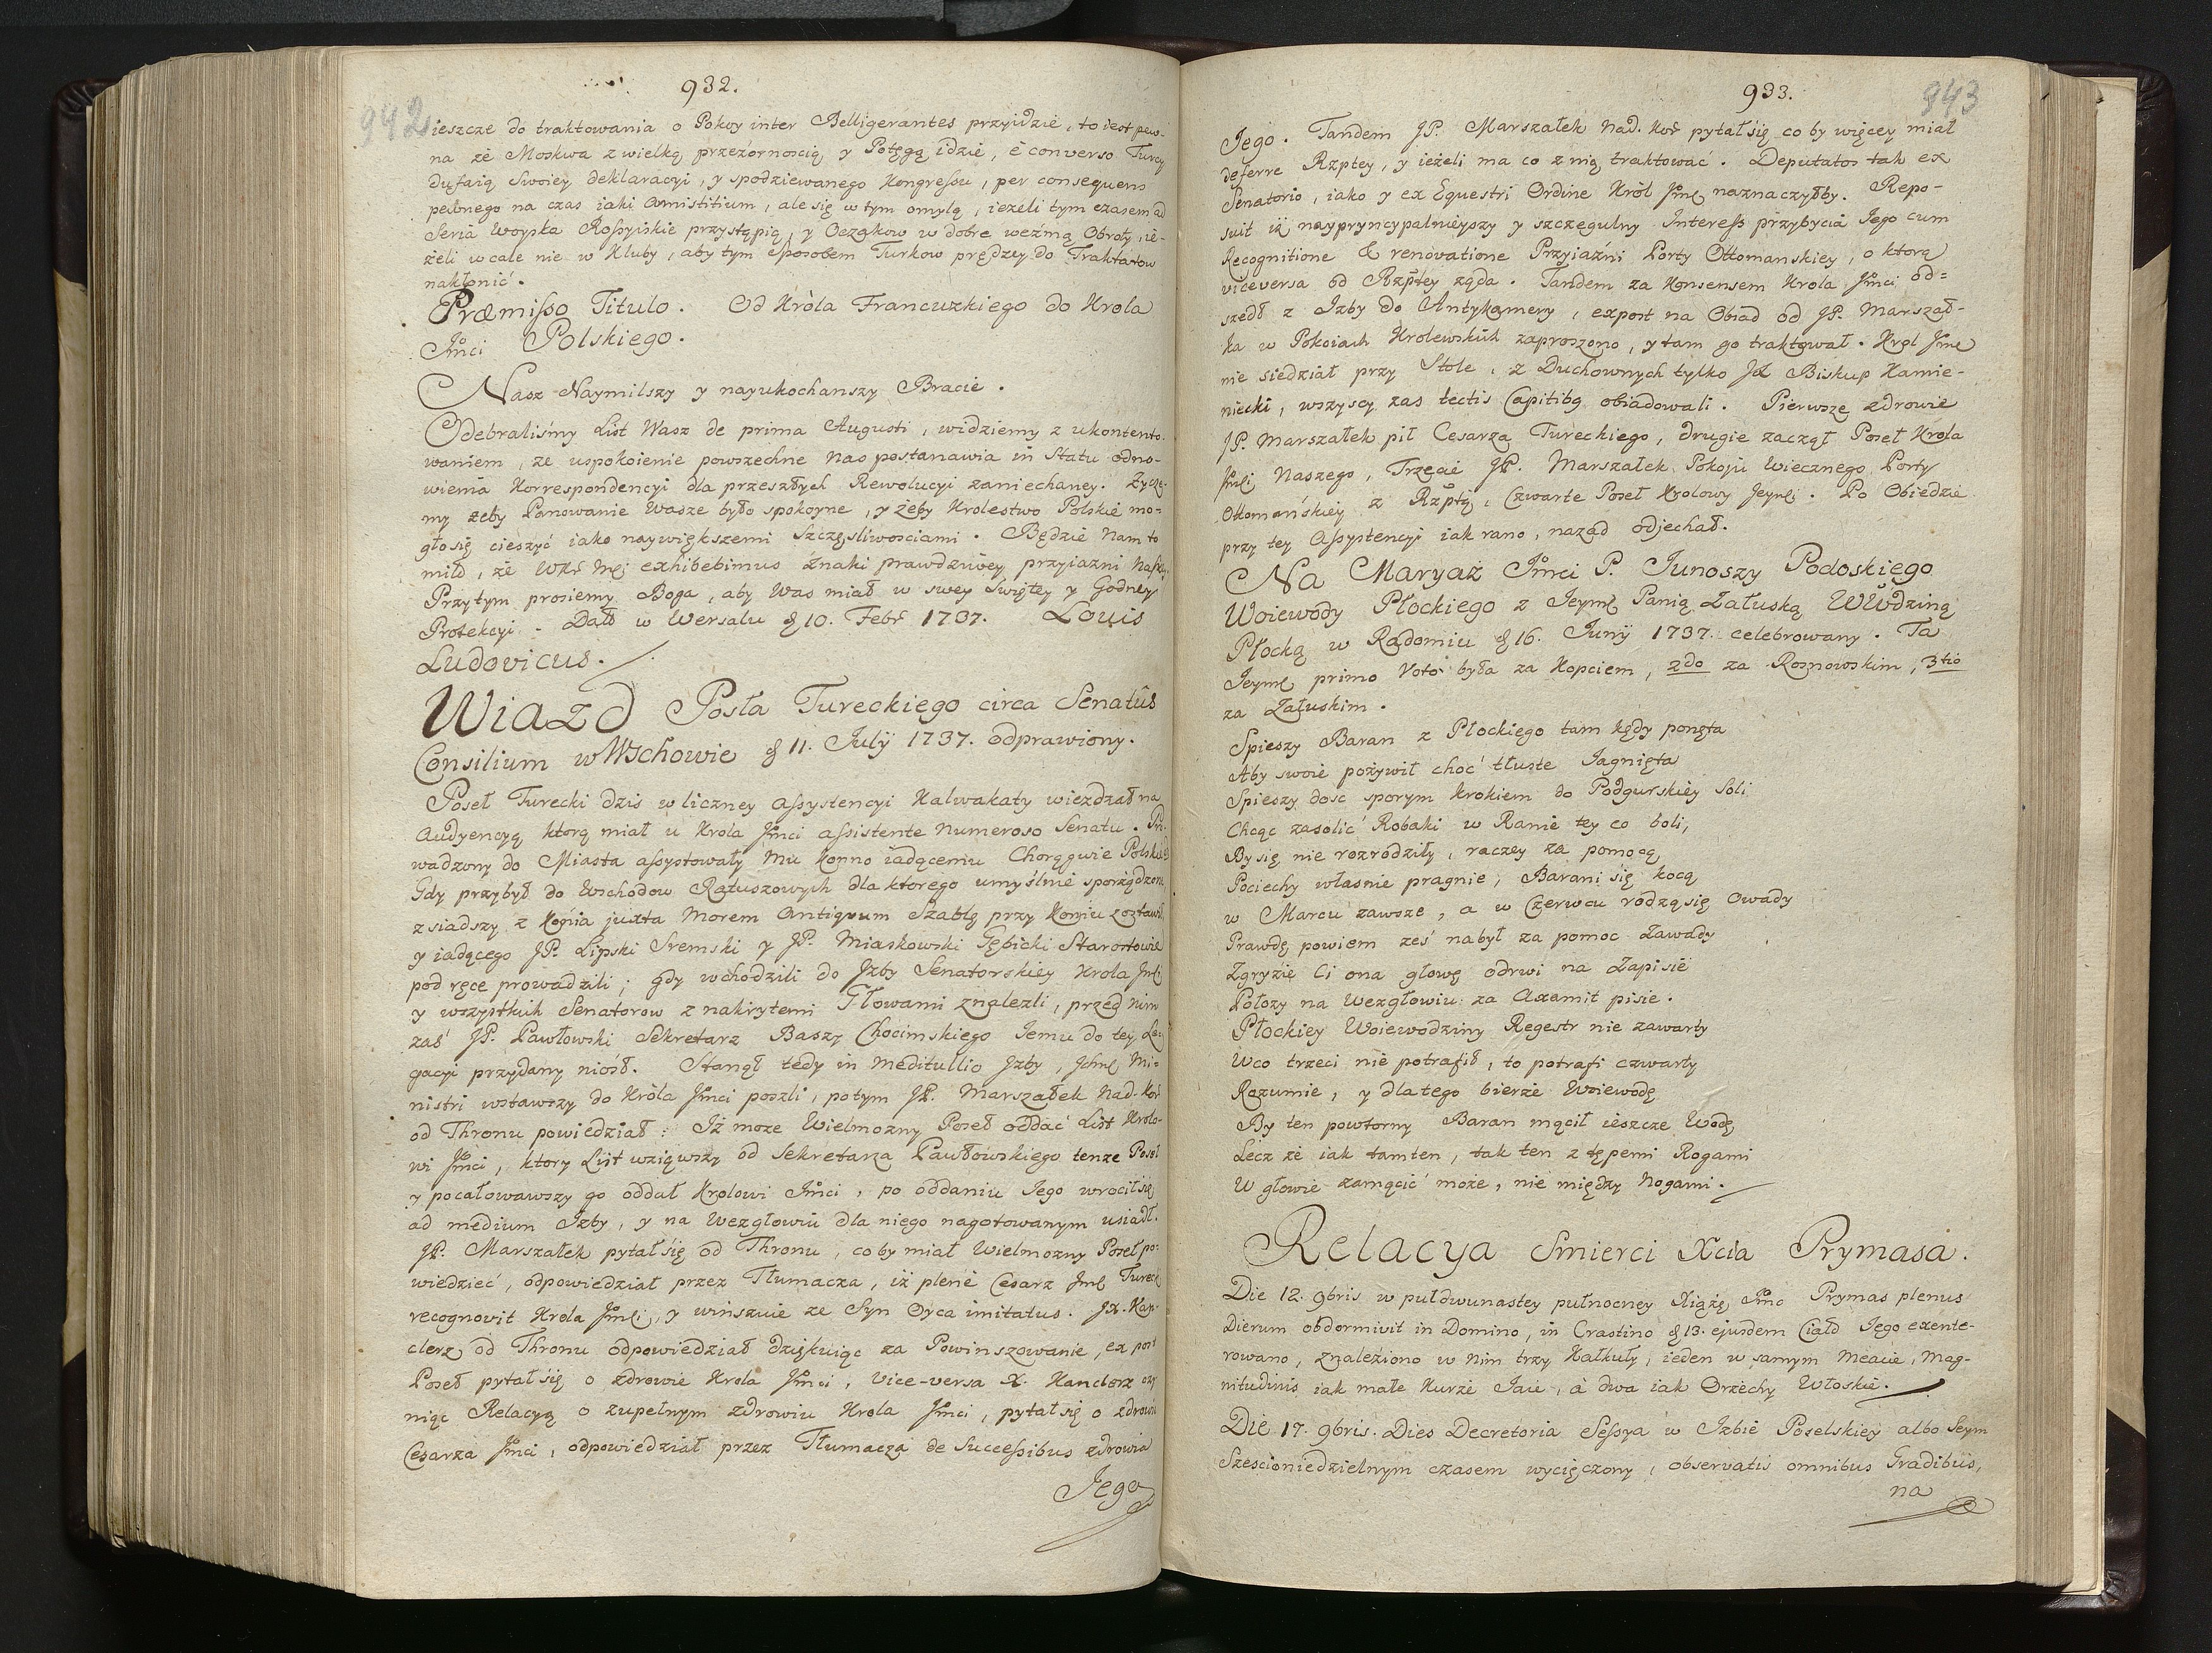 932.
942
ieszcze do traktowania o Pokoy inter Belligerantes przyidzie, to iest pew-
na że Moskwa z wielką przezornoscią y Potęgą idzie, è converso Turcy
dufaią Swoiey deklaracyi, y spodziewanego Kongressu, per consequens
pewnego na czas iaki Amistitium, ale się w tym omylą, ieżeli tym czasem ad
Seria Woyska Rossyiskie przystąpią, y Oczakow w dobre wezmą Obroty, ie-
żeli wcale nie w Kluby, aby tym sposobem Turkow prędzey do Traktatow
nakłonić.
Præmisso Titulo. Od Króla Francuzkiego do Krola
Jmci Polskiego.
Nasz Naymilszy y nayukochanszy Bracie.
Odebraliśmy List Wasz de prima Augusti, widziemy z ukontento-
waniem, ze uspokoienie powszechne Nas postanawia in Statu odno-
wienia Korrespondencyi dla przeszłych Rewolucyi zaniechaney. Życze-
my żeby Panowanie Wasze było spokoyne, y żeby Krolestwo Polskie mo-
gło się cieszyć iako naywiększemi szczęsliwosciami. Będzie Nam to
miło, że WKr Mci exhibebimus Znaki prawdziwey przyiazni Naszey
Przytym prosiemy Boga, aby Was miał w swey Swiętey y Godney
Protekcyi. Datt w Wersalu d 10. Febr 1737. Louis
Ludovicus.
Wiazd Posła Tureckiego circa Senatûs
Consilium w Wschowie d 11. Julÿ 1737. odprawiony.
Poseł Turecki dzis w liczney Assystencyi Kalwakaty wiezdzał na
Audyencyą ktorą miał u Krola Jmci assistente Numeroso Senatu.
wadzony do Miasta assystowały Mu konno iadącemu Chorągwie Polskie
Gdy przybył do Wschodow Ratuszowych dla ktorego umyślnie sporządzon
zsiadszy z Konia juxta Morem Antiqvum Szablę przy Koniu zostawił,
y iadącego JP. Lipski Sremski y JP. Miaskowski Gębicki Starostowie
pod ręce prowadzili; gdy wchodzili do Jzby Senatorskiey Krola Jmci
y wszystkich Senatorow z nakrytemi Głowami znalezli, przed Nim
zaś JP. Pawłowski Sekretarz Baszy Chocimskiego Jemu do tey Le-
gacyi przydany niósł. Stanął tedy in meditullio Jzby, Jchmć Mi-
nistri wstawszy do Króla Jmci poszli, potym JP. Marszałek Nad. Kor
od Thronu powiedział: Iż może Wielmozny Poseł oddać List Krolo-
wi Jmci, ktory List wziąwszy od Sekretarza Pawłowskiego tenze Poseł
y pocałowawszy go oddał Krolowi Jmci, po oddaniu Jego wrocił się
ad medium Izby, y na Wezgłowiu dla niego nagotowanym usiadł.
JP. Marszałek pytał się od Thronu, co by miał Wielmozny Poseł po-
wiedzieć, odpowiedział przez Tłumacza, iż plenè Cesarz Jmć Turecki
recognovit Krola Jmci, y winszuie ze Syn Oyca imitatus. JX. Kan-
clerz od Thronu odpowiedział dziękuiąc za Powinszowanie, ex post
Poseł pytał się o zdrowie Krola Jmci, vice-versa X. Kanclerz czy
niąc Relacyą o zupełnym zdrowiu Krola Jmci, pytał się o zdrowie
Cesarza Jmci, odpowiedział przez Tłumacza de Successibus zdrowia
Jego
933.
943
Jego. Tandem JP. Marszałek Nad. Kor pytał się co by więcey miał
deferre Rzptey, y ieżeli ma co z nią traktować. Deputatos tak ex
Senatorio, iako y ex Equestri Ordine Król Jmć naznaczyłby. Repo-
suit iż naypryncypalnieyszy y szczegulny Interess przybycia Jego cum
Recognitione & renovatione Przyiaźni Porty Ottomanskiey, o ktorą
viceversa od Rzptey żąda. Tandem za Konsensem Krola Jmci od-
szedł z Izby do Antykamery, expost na Obiad od JP. Marszał-
ka w Pokoiach Krolewskich zaproszono, y tam go traktował. Krol Jmć
nie siedział przy Stole, z Duchownych tylko JX Biskup Kamie-
niecki, wszyscy zas tectis Capitibq obiadowali. Pierwsze zdrowie
JP. Marszałek pił Cesarza Tureckiego, drugie zaczął Poseł Krola
Jmci Naszego, Trzecie JP. Marszałek Pokoju Wiecznego Porty
Ottomańskiey z Rzptą, Czwarte Poseł Krolowy Jeymci. Po Obiedzie
przy tey Assystencyi iak rano, nazad odjechał.
Na Maryaż Jmci P. Junoszy Podoskiego
Woiewody Płockiego z Jeymć Panią Załuską WWdziną
Płocką w Radomiu d 16. Junÿ 1737. celebrowany. Ta
Jeymć primo Voto była za Kopciem, 2do za Rosnowskim, 3tio
za Załuskim.
Spieszy Baran z Płockiego tam kędy ponęta
Aby swoie pożywił choć tłuste Jagnięta
Spieszy dosc sporym krokiem do Podgurskiey Soli
Chcąc zasolić Robaki w Ranie tey co boli,
By się nie rozrodziły, raczey za pomocą
Pociechy własnie pragnie, Barani się kocą
w Marcu zawsze, a w Czerwcu rodzą się Owady
Prawdę powiem ześ nabył za pomoc Zawady
Zgryzie Ci ona głowę odrwi na Zapisie
Położy na Wezgłowiu za Axamit pisie.
Płockiey Woiewodziny Regestr nie zawarty
Wco trzeci nie potrafił, to potrafi czwarty
Rozumie, y dla tego bierze Woiewodę
By ten powtorny Baran mącił ieszcze Wodę
Lecz że iak tamten, tak ten z tępemi Rogami
W głowie zamącić może, nie między Nogami.
Relacya Smierci Xcia Prymasa.
Die 12. 9bris w puł dwunastey pułnocney Xiążę Jmć Prymas plenus
Dierum obdormivit in Domino, in Crastino d 13. ejusdem Ciało Jego exente-
rowano, znaleziono w Nim trzy Kałkuły, ieden w samym Meacie, Mag-
nitudinis iak małe Kurze Jaie, à dwa iak Orzechy Włoskie.
Die 17. 9bris. Dies Decretoria Sessya w Izbie Poselskiey albo Seym
Szescioniedzielnym czasem wycięczony, observatis omnibus Gradibus,
na